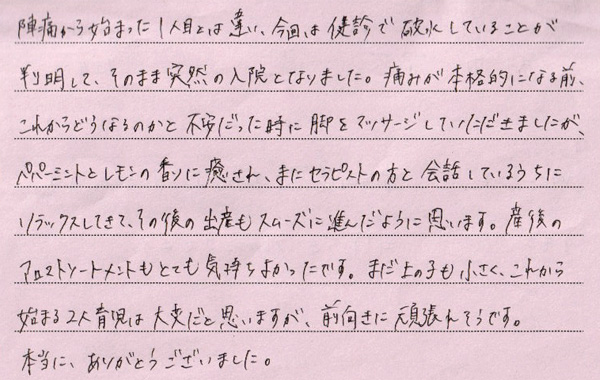 陣痛から始まった1人目とは違い、今回は健診で破水していることが
判明して、そのまま突然の入院となりました。痛みが本格的になる前、
これからどうなるのかと不安だった時に脚をマッサージしていただきましたが、
ペパーミントとレモンの香りに癒され、またセラピストの方と会話しているうちに
リラックスしてきて、その後の出産もスムーズに進んだように思います。産後の
アロマトリートメントもとても気持ちよかったです。まだ上の子も小さく、これから
始まる2人育児は大変だと思いますが、前向きに頑張れそうです。
本当に、ありがとうございました。